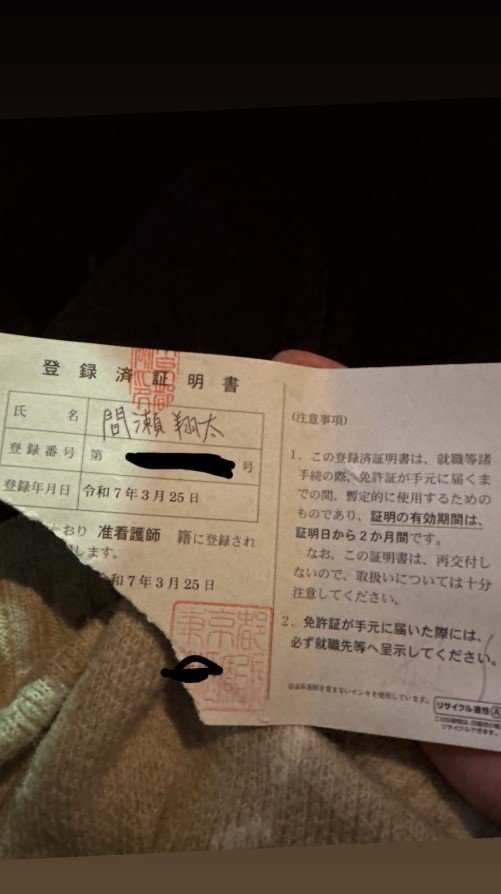 登録済証明書
氏名 間瀬翔太
登録番号 第 号
登録年月日 令和7年3月25日
とおり 准看護師 籍に登録され
します。
和7年3月25日
東京都
(注意事項)
1. この登録済証明書は、就職等諸
手続の際、免許証が手元に届くま
での間、暫定的に使用するための
ものであり、証明の有効期間は、
証明日から2か月間です。
なお、この証明書は、再交付し
ないので、取扱いについては十分
注意してください。
2. 免許証が手元に届いた際には、
必ず就職先等へ呈示してください。
石油系溶剤を含まないインキを使用しています。
リサイクル適性Ⓐ
この印刷物は、印刷用の紙へ
リサイクルできます。